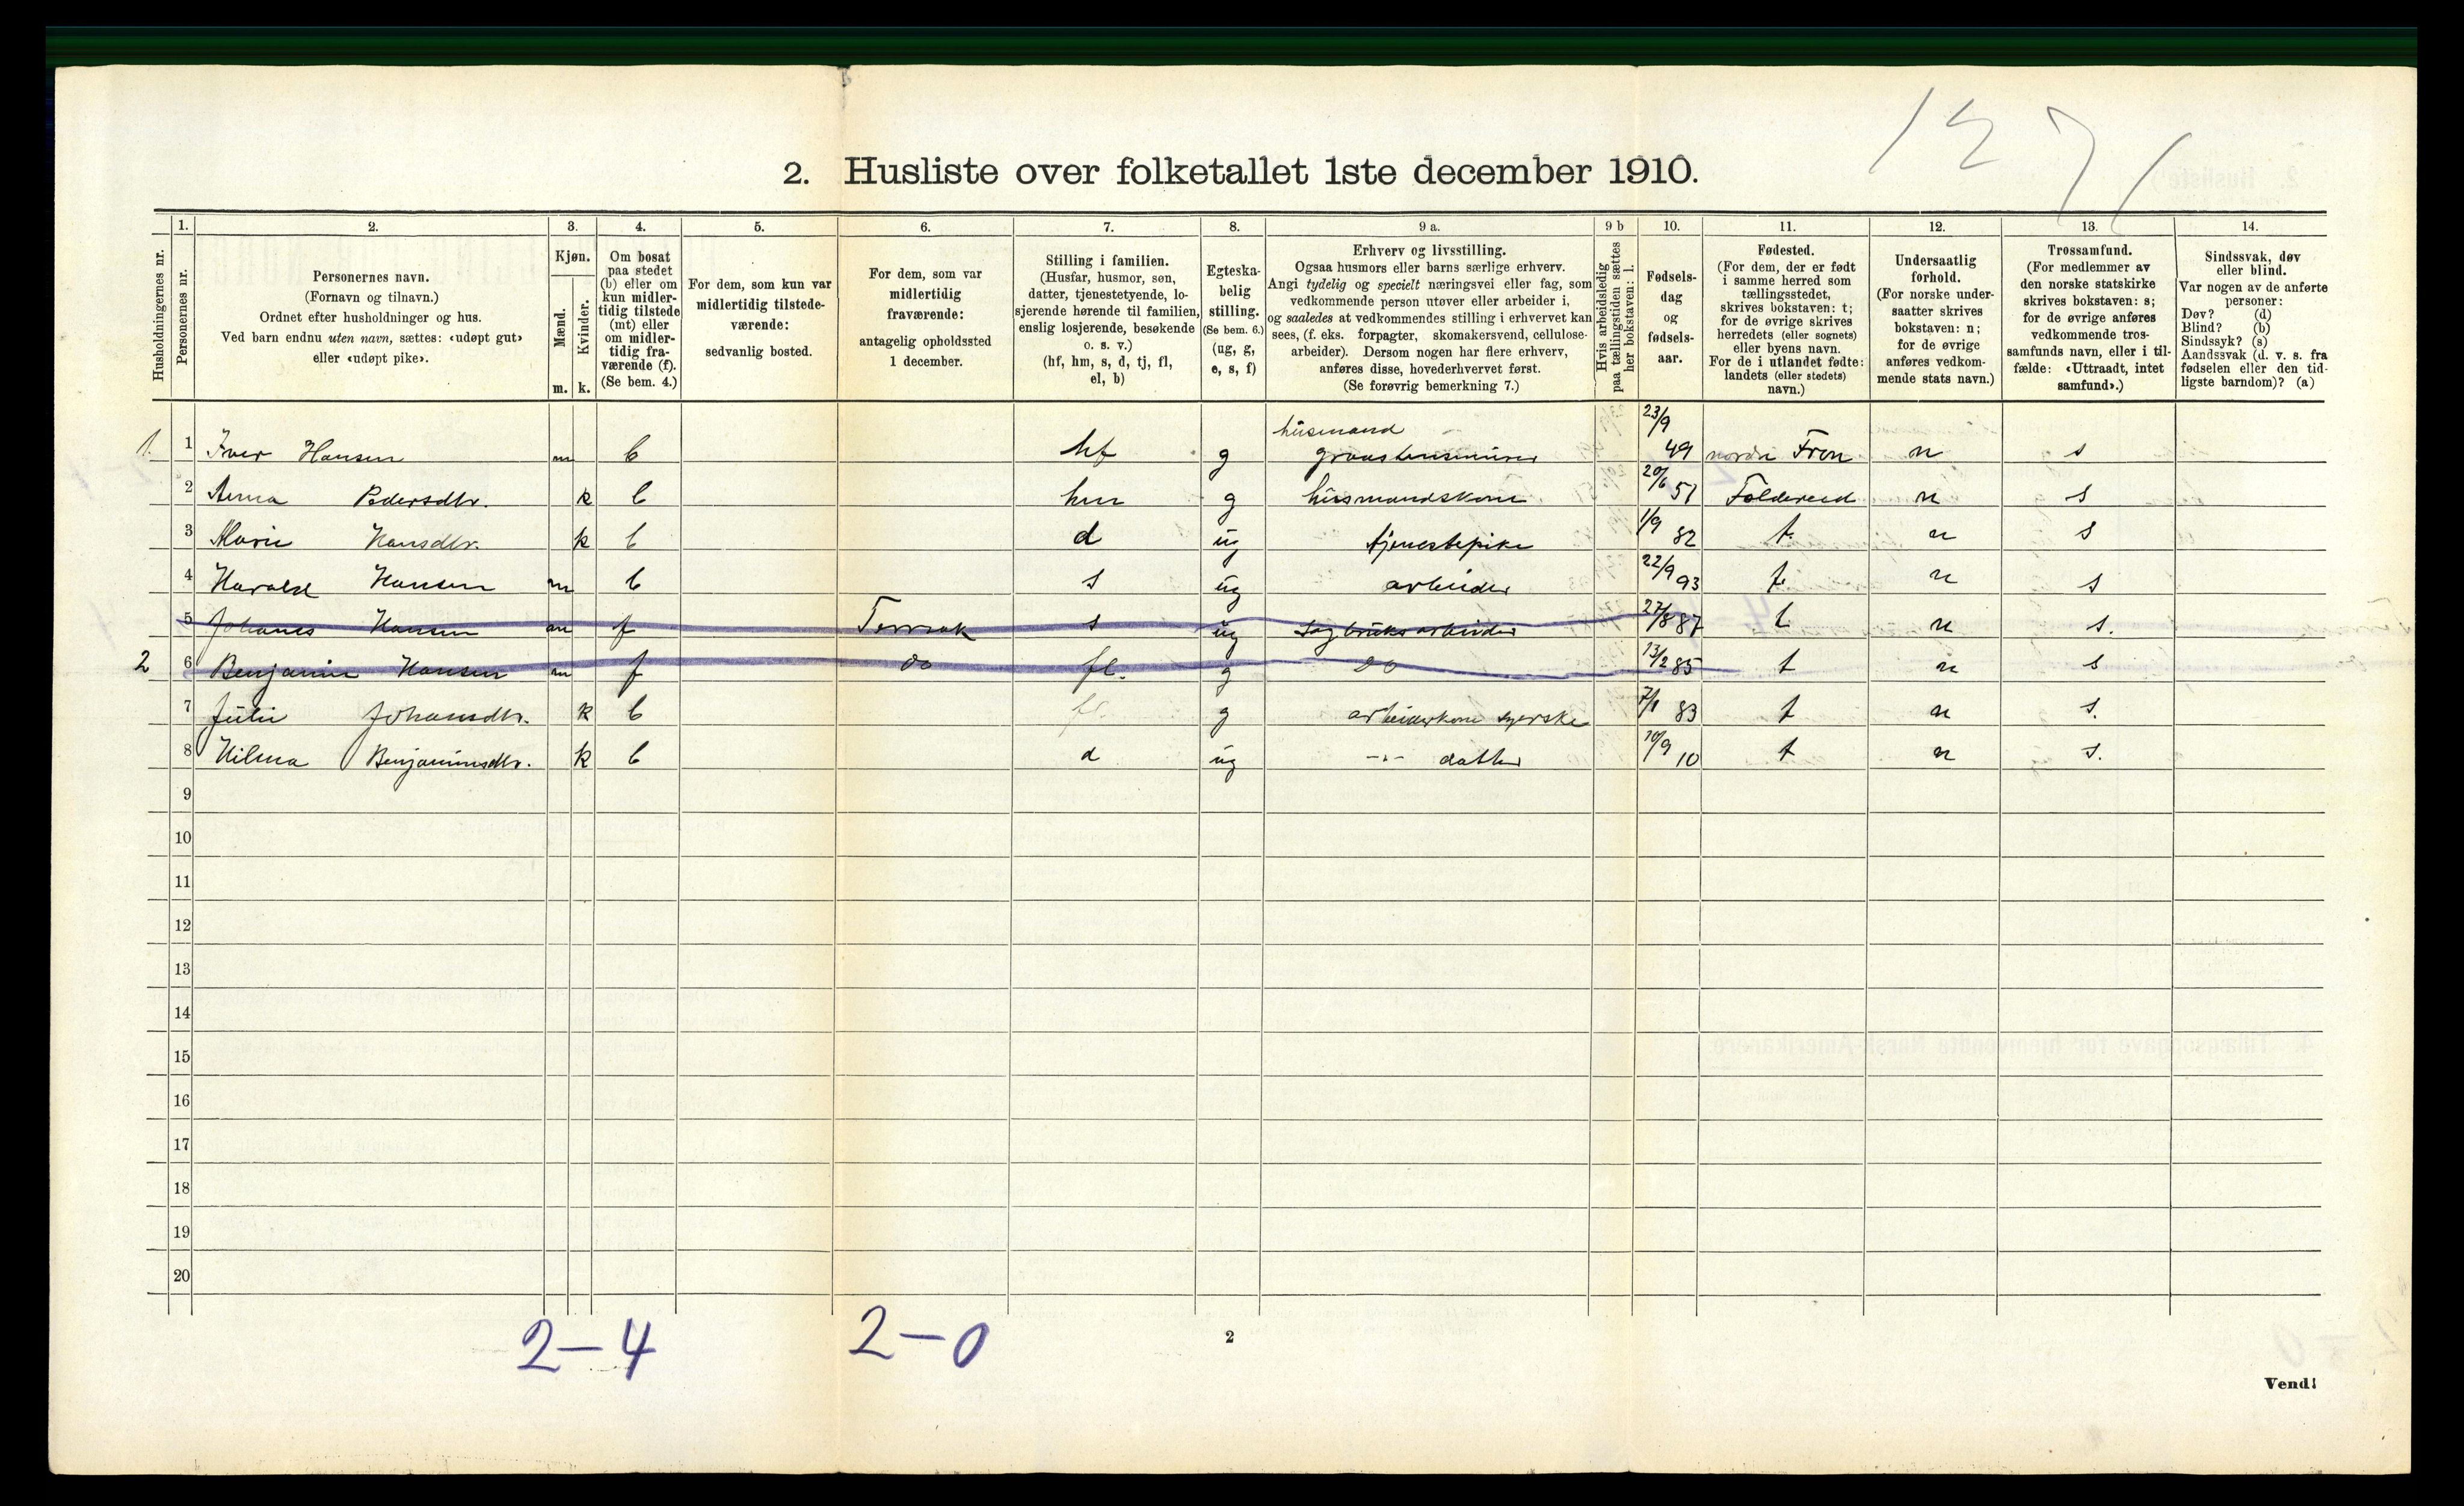 12 71
2. Husliste over folketallet 1ste december 1910.
1. 2. 3. 4. 5. 6. 7. 8. 9 a. 9 b 10. 11. 12. 13. 14.
Husholdningernes nr.
Personernes nr.
Personernes navn.
(Fornavn og tilnavn.)
Ordnet efter husholdninger og hus.
Ved barn endnu uten navn, sættes: «udøpt gut»
eller «udøpt pike».
Kjøn.
Mænd.
Kvinder.
m. k.
Om bosat
paa stedet
(b) eller om
kun midler-
tidig tilstede
(mt) eller
om midler-
tidig fra-
værende (f).
(Se bem. 4.)
For dem, som kun var
midlertidig tilstede-
værende:
sedvanlig bosted.
For dem, som var
midlertidig
fraværende:
antagelig opholdssted
1 december.
Stilling i familien.
(Husfar, husmor, søn,
datter, tjenestetyende, lo-
sjerende hørende til familien,
enslig losjerende, besøkende
o. s. v.)
(hf, hm, s, d, tj, fl,
el, b)
Egteska-
belig
stilling.
(Se bem. 6.)
(ug, g,
e, s, f)
Erhverv og livsstilling.
Ogsaa husmors eller barns særlige erhverv.
Angi tydelig og specielt næringsvei eller fag, som
vedkommende person utøver eller arbeider i,
og saaledes at vedkommendes stilling i erhvervet kan
sees, (f. eks. forpagter, skomakersvend, cellulose-
arbeider). Dersom nogen har flere erhverv,
anføres disse, hovederhvervet først.
(Se forøvrig bemerkning 7.)
Hvis arbeidsledig
paa tællingstiden sættes
her bokstaven: l.
Fødsels-
dag
og
fødsels-
aar.
Fødested.
(For dem, der er født
i samme herred som
tællingsstedet,
skrives bokstaven: t;
for de øvrige skrives
herredets (eller sognets)
eller byens navn.
For de i utlandet fødte:
landets (eller stedets)
navn.)
Undersaatlig
forhold.
(For norske under-
saatter skrives
bokstaven: n;
for de øvrige
anføres vedkom-
mende stats navn.)
Trossamfund.
(For medlemmer av
den norske statskirke
skrives bokstaven: s;
for de øvrige anføres
vedkommende tros-
samfunds navn, eller i til-
fælde: «Uttraadt, intet
samfund».)
Sindssvak, døv
eller blind.
Var nogen av de anførte
personer:
Døv? (d)
Blind? (b)
Sindssyk? (s)
Aandssvak (d. v. s. fra
fødselen eller den tid-
ligste barndom)? (a)
1. 1 Iver Hansen m b hf g husmand graastensmurer 23/9 49 nordre Fron n s
2 Anna Pedersdtr. k b hm g husmandskone 20/6 51 Foldereid n s
3 Marie Hansdtr. k b d ug tjenestepike 1/9 82 t n s
4 Harald Hansen m b s ug arbeider 22/9 93 t n s
5 Johanes Hansen m f s ug Sagbruksarbeider 27/8 87 t n s.
2 6 Benjamin Hansen m f do fl. g do 13/2 85 t n s
7 Julie Johansdtr. k b fl. g arbeiderkone syerske 83 t n s.
8 Hilma Benjaminsdtr. k b d ug -"- datter 10/9 10 t n s.
9
10
11
12
13
14
15
16
17
18
19
20
2-4 2-0
2
Vend!